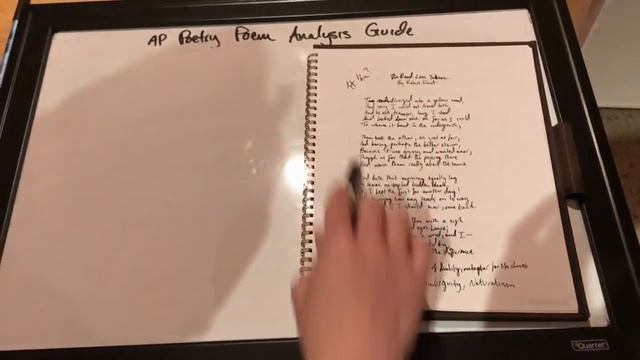 AP Poetry Poem Analysis Guide
The Road Less Taken
By Robert Frost
diverged into a yellow wood,
And sorry I could not travel both
And be one traveler, long I stood
And looked down one as far as I could
To where it bent in the undergrowth;
Then took the other, as just as fair,
And having perhaps the better claim,
Because it was grassy and wanted wear;
Though as for that the passing there
Had worn them really about the same
And both that morning equally lay
In leaves no step had trodden black
I kept the first for another day!
how way leads on to way
I should ever come back
this with a sigh
ages hence;
wood, and I—
by
the difference
of duality, metaphor for life choices
ambiguity, Naturalism
Quartet